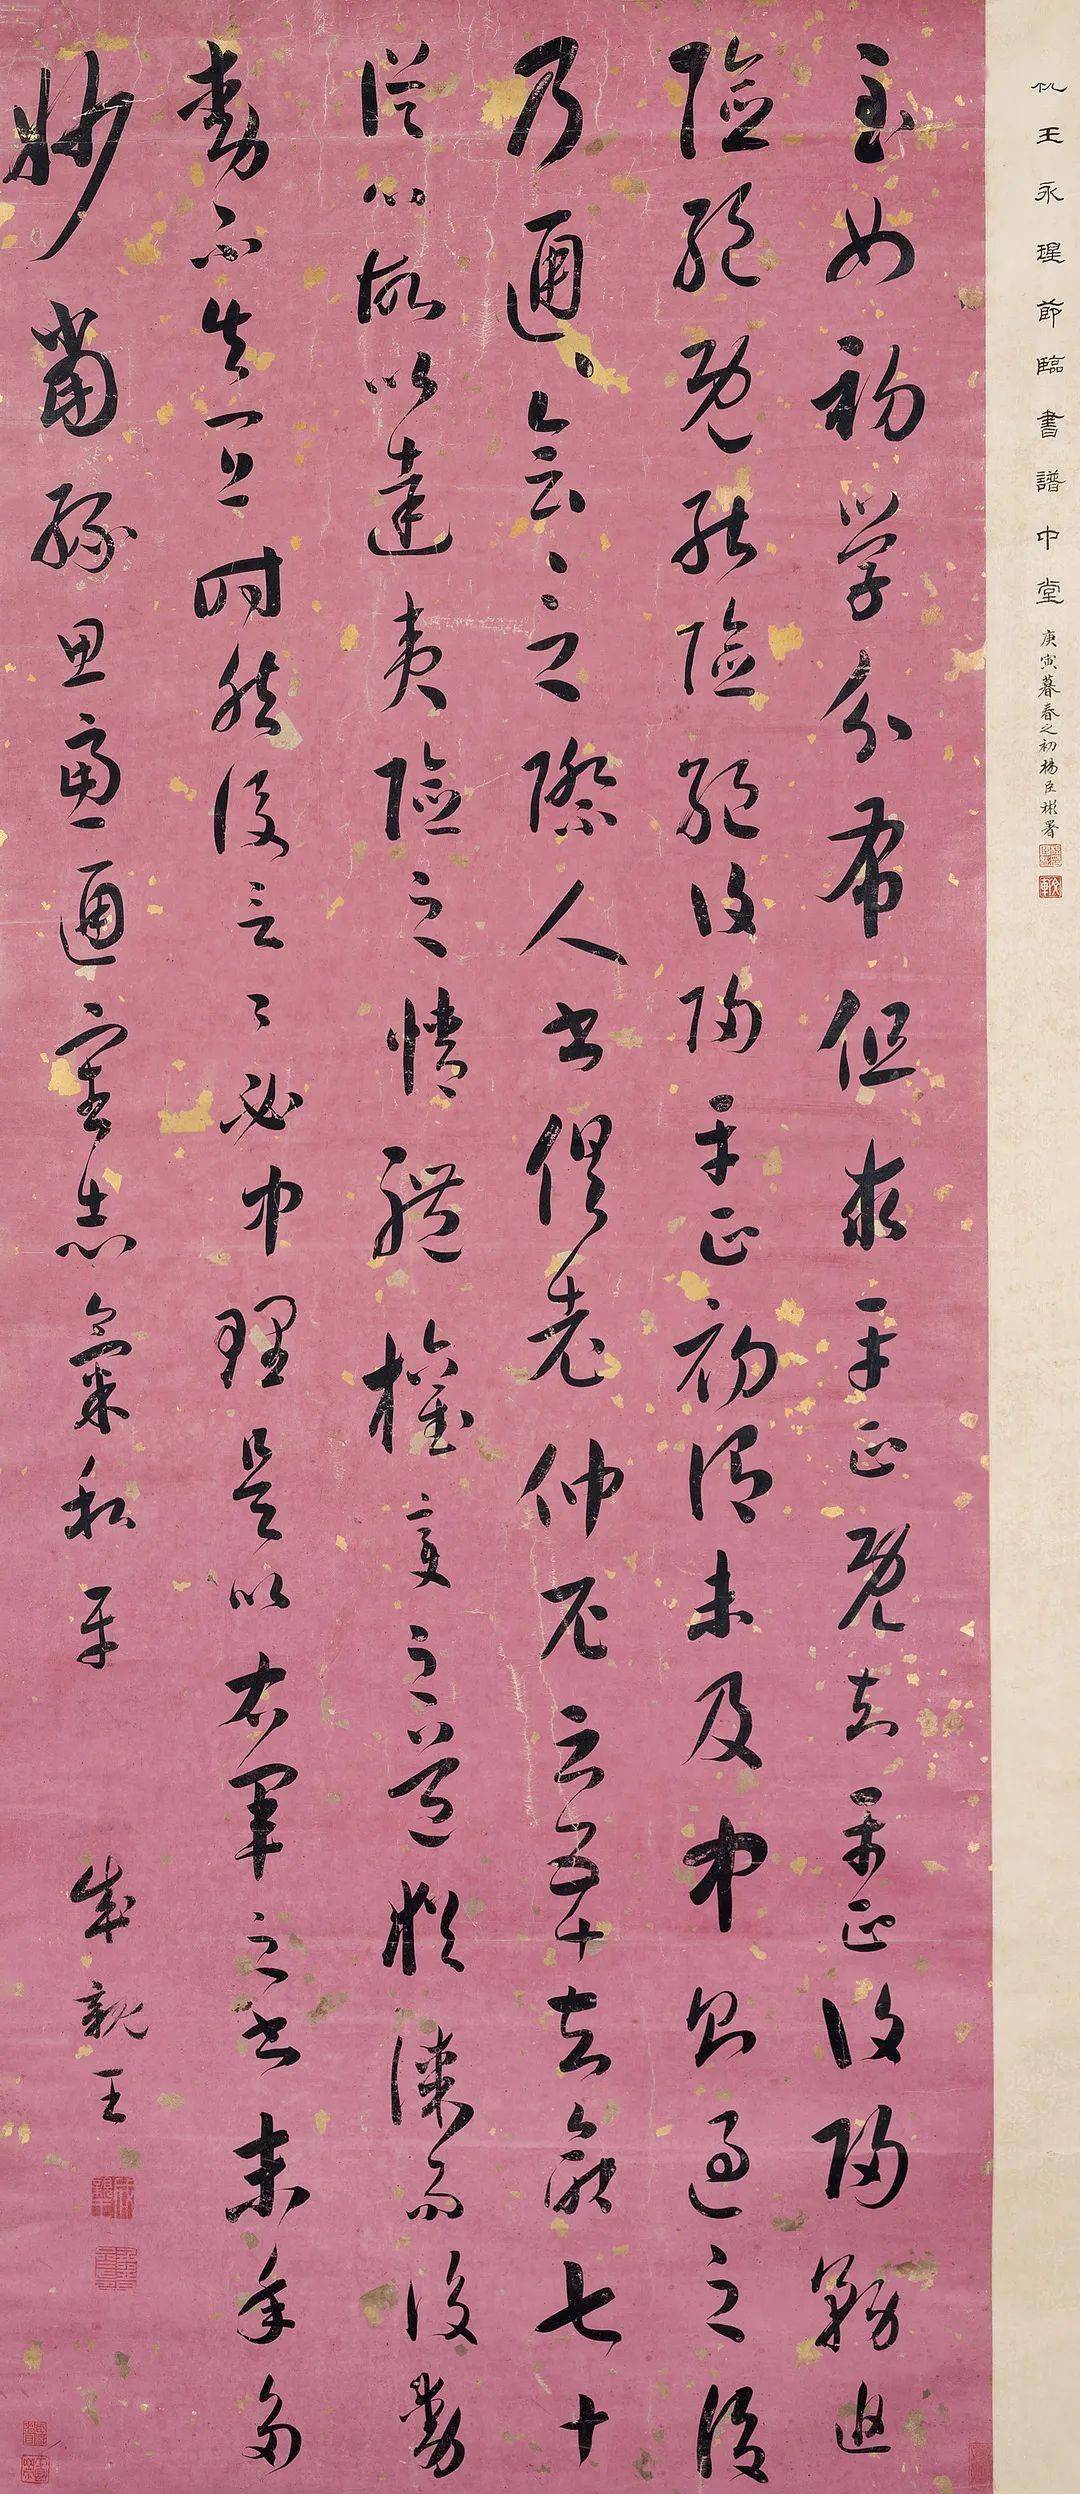 王永瑆節臨書譜中堂
庚寅暮春之初楊臣彬署
至如初學分布但求平正既知平正復歸務追
險絕既能險絕復歸平正初謂未及中則過之後
乃通〻會〻之際人書俱老仲尼云五十知命七十
從心故以達夷險之情體權變之道猶謀而後動
動不失宜時然後言〻必中理是以右軍之書末年多
妙當緣思慮通審志氣和平
成親王